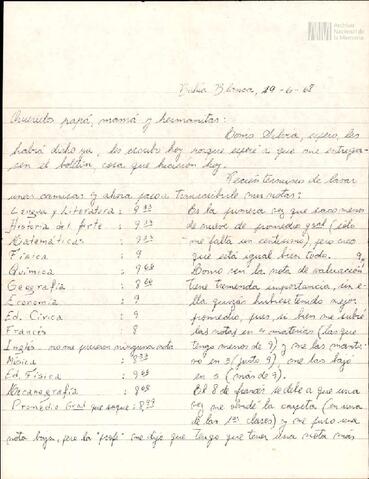 Archivo
Nacional de
la Memoria
Bahía Blanca, 19-6-68
Queridos papá, mamá y hermanitas:
Como Silvia, espero, les
habrá dicho ya, les escribo hoy porque esperé a que me entrega-
sen el boletín cosa que hicieron hoy.
Recién termino de lavar
unas camisas y ahora paso a transcribirle mis notas:
Lengua y Literatura: 9 33
Historia del Arte: 9 33
Matemáticas: 9
Física: 9
Química: 9 68
Geografía: 8
Economía: 9
Ed. Cívica: 9
Francés: 8
Inglés: no me pusieron ninguna nota
Música: 9 33
Ed. Física: 9
Mecanografía: 8
Promedio Gral que saqué: 8 99
Es la primera vez que saco menos
de nueve de promedio gral (sólo
me falta un centésimo), pero creo
que está igual bien todo.
Como ven la nota de evaluación
tiene tremenda importancia, sin e-
lla quizás hubiese tenido mejor
promedio, pues si bien me subió
las notas en materias (las que
tengo menos de 9) y me las mantu-
vo en 3 (justo 9) me las bajó
en 5 (más de 9).
El 8 de francés se debe a que una
vez me olvidé la carpeta (en una
de las 1as clases) y me puso una
nota baja, pero la "profe" me dijo que tengo que tener una nota más